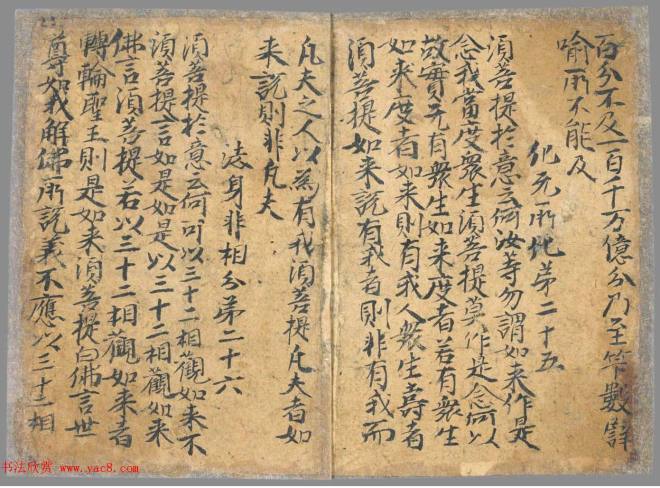 百分不及一百千万億分乃至筭數譬
喻所不能及
化无所化第二十五
須菩提於意云何汝等勿謂如来作是
念我當度衆生須菩提莫作是念何以
故實无有衆生如来度者若有衆生
如来度者如来則有我人衆生壽者
須菩提如来說有我者則非有我而
凡夫之人以為有我須菩提凡夫者如
来說則非凡夫
法身非相分第二十六
須菩提於意云何可以三十二相觀如来不
須菩提言如是如是以三十二相觀如来
佛言須菩提若以三十二相觀如来者
轉輪聖王則是如来須菩提白佛言世
尊如我解佛所說義不應以三十二相
书法欣赏 www.yac8.com